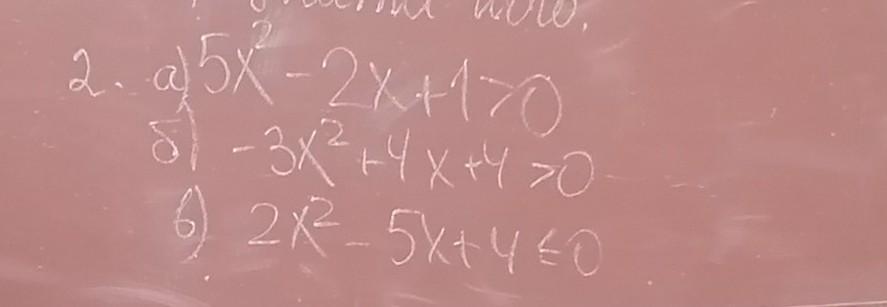 2. а) 5x² - 2x + 1 > 0
б) -3x² + 4x + 4 > 0
в) 2x² - 5x + 4 ≤ 0